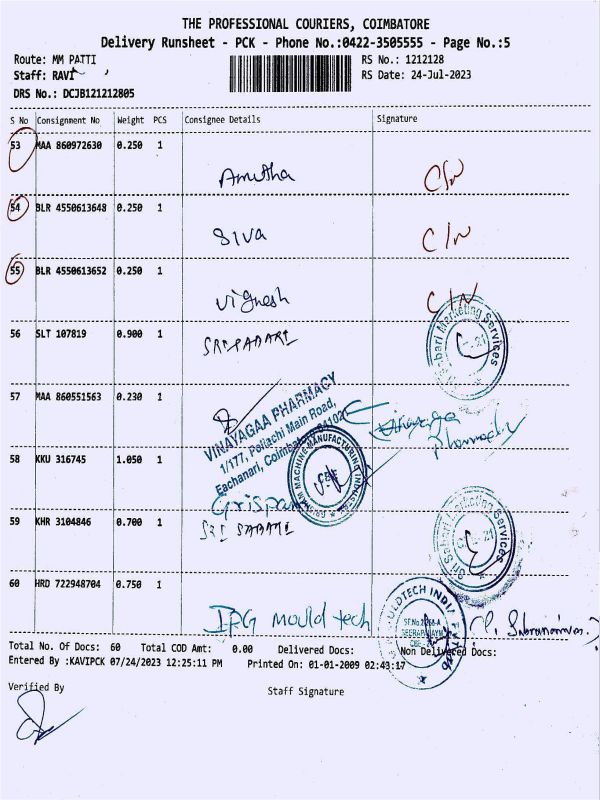 THE PROFESSIONAL COURIERS, COIMBATORE
Delivery Runsheet - PCK - Phone No.:0422-3505555 - Page No.:5
Route: MM PATTI
RS No.: 1212128
Staff: RAVI
RS Date: 24-Jul-2023
DRS No.: DCJB121212805
S No Consignment No Weight PCS Consignee Details Signature
53 MAA 860972630 0.250 1
Amutha C/N
54 BLR 4550613648 0.250 1
Siva C/N
55 BLR 4550613652 0.250 1
Vignesh C/N
56 SLT 107819 0.900 1
SRI SABARI
Sri Sabari Marketing Services
57 MAA 860551563 0.230 1
VINAYAGAA PHARMACY
1/177, Pollachi Main Road,
Eachanari, Coimbatore
Vinayaga
pharmacy
58 KKU 316745 1.050 1
MACHINE MANUFACTURING INDUSTRIES
59 KHR 3104846 0.700 1
SRI SABARI
Sri Sabari Marketing Services
60 HRD 722948704 0.750 1
IPG mould tech
Total No. Of Docs: 60 Total COD Amt: 0.00 Delivered Docs: Non Delivered Docs:
Entered By :KAVIPCK 07/24/2023 12:25:11 PM Printed On: 01-01-2009 02:43:17
Verified By
Staff Signature